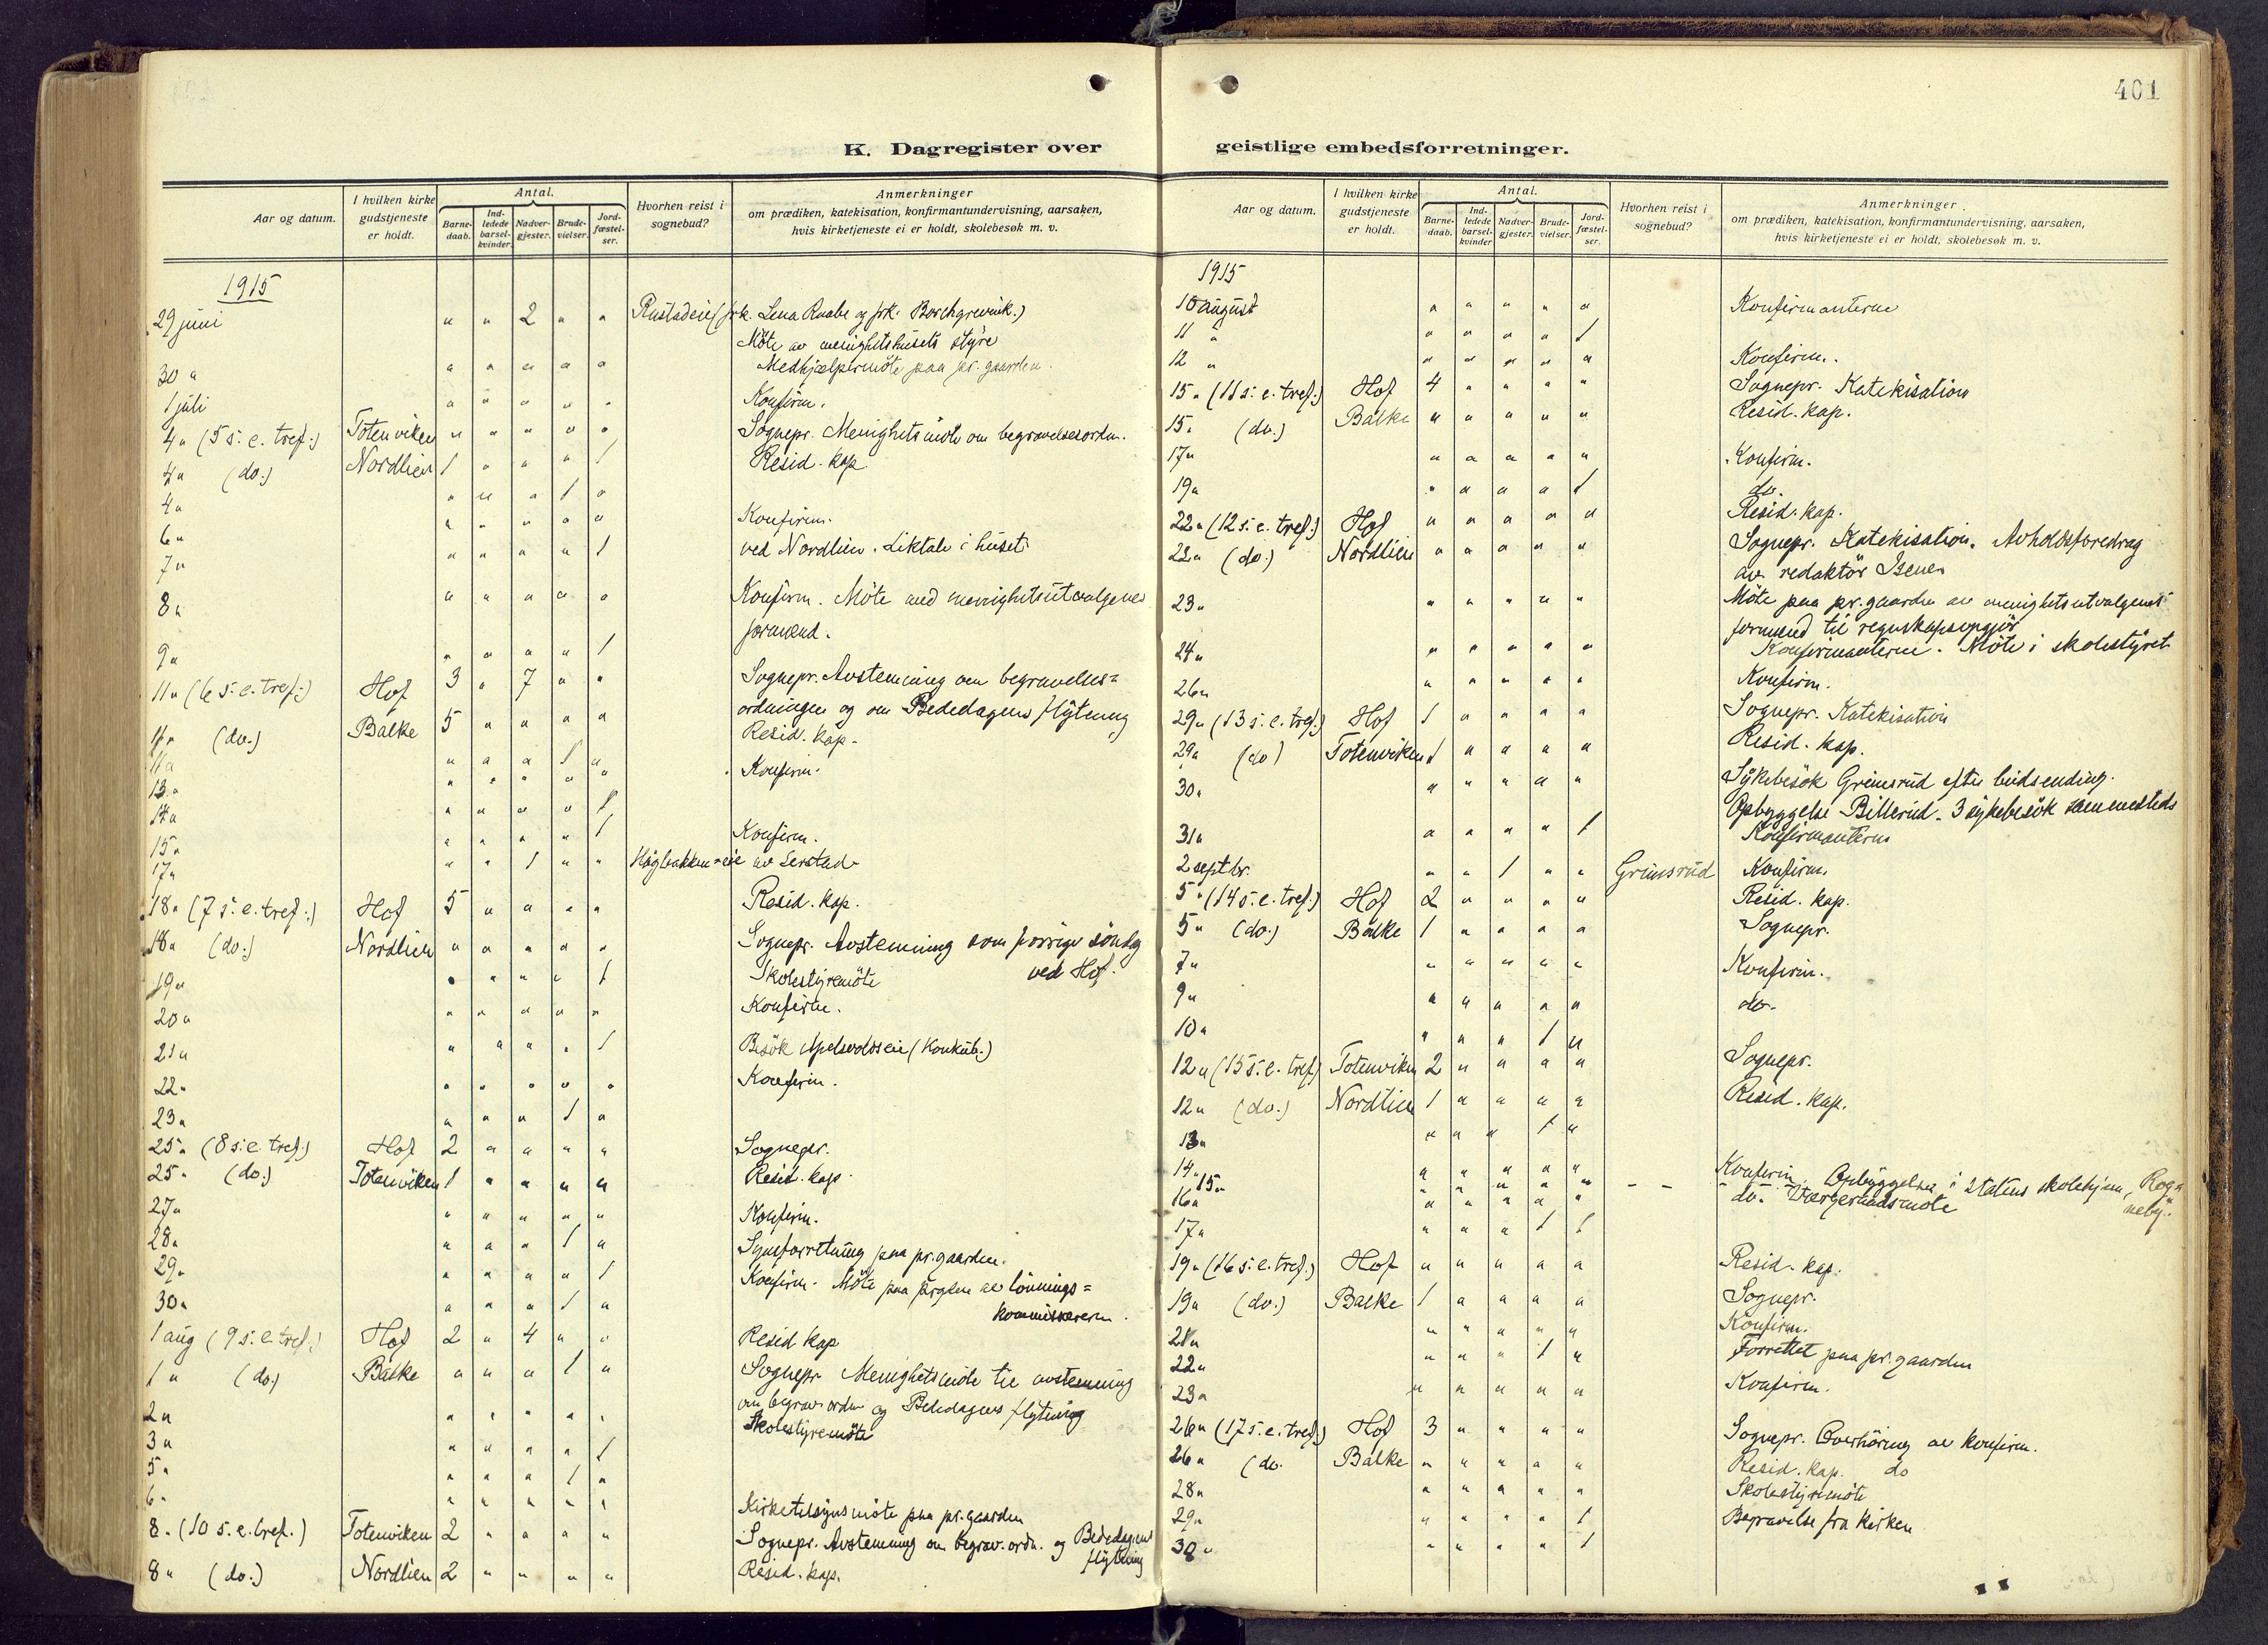 401
K. Dagregister over geistlige embedsforretninger.
Aar og datum. I hvilken kirke gudstjeneste er holdt. Antal. Barnedaab. Indledede barselkvinder. Nadvergjester. Brudevielser. Jordfæstelser. Hvorhen reist i sognebud? Anmerkninger om prædiken, katekisation, konfirmantundervisning, aarsaken, hvis kirketjeneste ei er holdt, skolebesøk m. v.
1915
29 juni " " 2 " " Rustadeie (frk. Lena Raabe og frk. Borchgrevink.)
Møte av menighetshusets styre
30 " " " " " " Medhjælpermøte paa pr. gaarden.
1 juli " " " " " Konfirm.
4 " (5 s. e. tref.) Totenviken " " " " " Sognepr. Menighetsmøte om begravelsesordn.
4 " (do.) Nordlien 1 " " " 1 Resid. kap.
4 " " " " 1 "
6 " " " " " " Konfirm.
7 " " " " " 1 ved Nordlien. Liktale i huset.
8 " " " " " " Konfirm. Møte med menighetsutvalgenes
formænd.
9 " " " " " 1
11 " (6 s. e. tref.) Hof 3 " 7 " " Sognepr. Avstemning om begravelses=
ordningen og om Bededagens flytning
11 " (do.) Balke 5 " " " " Resid. kap.
11 " " " " 1 "
13 " " " " " " Konfirm.
14 " " " " " 1
15 " " " " " 1 Konfirm.
17 " " " 1 " " Høgbakken eie av Lerstad
18 " (7 s. e. tref.) Hof 5 " " " " Resid. kap.
18 " (do.) Nordlien " " " " " Sognepr. Avstemning som forrige søndag
ved Hof.
19 " " " " " 1 Skolestyremøte
20 " " " " " " Konfirm.
21 " " " " " 1 Besøk Apelsvoldseie (Konkub.)
22 " " " " " " Konfirm.
23 " " " " 1 "
25 " (8 s. e. tref.) Hof 2 " " " " Sognepr.
25 " (do.) Totenviken 1 " " " " Resid. kap.
27 " " " " " " Konfirm.
28 " " " " 1 " Synsforretning paa pr. gaarden.
29 " " " " " 1 Konfirm. Møte paa prgden av lønnings=
kommissionen.
30 " " " " 1 "
1 aug (9 s. e. tref.) Hof 2 " 4 " " Resid kap
1 " (do.) Balke " " " 1 " Sognepr Menighetsmøte til avstemning
om begrav. ordn og Bededagens flytning
2 " " " " " " Skolestyremøte
3 " " " " " 1
5 " " " " 1 "
6 " " " " " " Kirketilsynsmøte paa pr. gaarden
8 " (10 s. e. tref.) Totenviken 2 " " " " Sognepr. Avstemning om begrav. ordn. og Bededagens
flytning
8 " (do.) Nordlien 2 " " " " Resid. kap.
Aar og datum. I hvilken kirke gudstjeneste er holdt. Antal. Barnedaab. Indledede barselkvinder Nadvergjester. Brudevielser. Jordfæstelser. Hvorhen reist i sognebud? Anmerkninger. om prædiken, katekisation, konfirmantundervisning, aarsaken, hvis kirketjeneste ei er holdt, skolebesøk m. v.
1915
10 august " " " " " Konfirmanterne
11 " " " " " 1
12 " " " " " " Konfirm.
15 " (11 s. e. tref.) Hof 4 " " " " Sognepr. Katekisation
15 " (do.) Balke " " " " " Resid. kap.
17 " " " " " " Konfirm.
19 " " " " " 1 do.
22 " (12 s. e. tref.) Hof " " " " " Resid. kap.
22 " (do.) Nordlien " " " " " Sognepr. Katekisation. Avholdsforedrag
av redaktør Isene
23 " " " " " " Møte paa pr. gaarden av menighetsutvalgenes
formænd til regnskapsopgjør
24 " " " " " " Konfirmanterne. Møte i skolestyret
26 " " " " " " Konfirm.
29 " (13 s. e. tref.) Hof 1 " " " " Sognepr. Katekisation
29 " (do) Totenviken 1 " " " " Resid. kap.
30 " " " " " " Sykebesøk Grimsrud efter budsending.
Opbyggelse Billerud. 3 sykebesøk sammesteds
31 " " " " " 1 Konfirmanterne
2 septbr. " " 1 " " Grimsrud Konfirm.
5 " (14 s. e. tref.) Hof 2 " " " " Resid. kap.
5 " (do.) Balke 1 " " " " Sognepr.
7 " " " " " " Konfirm.
9 " " " " " " do.
10 " " " " 1 "
12 " (15 s. e. tref) Totenviken 2 " " " " Sognepr.
12 " (do.) Nordlien 1 " " " " Resid. kap.
13 " " " " 1 "
14 " " " " " " Konfirm.
15 " " " " " " - - Opbyggelse i Statens skolehjem, Rog=
neby.
16 " " " " " " do. Værgeraadsmøte
17 " " " " 1 1
19 " (16 s. e. tref.) Hof " " " " " Resid. kap.
19 " (do.) Balke 1 " " " " Sognepr.
21 " " " " " " Konfirm.
22 " " " " 1 " Forrettet paa pr. gaarden
23 " " " " " " Konfirm.
26 " (17 s. e. tref.) Hof 3 " " " " Sognepr. Overhøring av konfirm.
26 " (do. Balke " " " " " Resid. kap. do
28 " " " " " " Skolestyremøte
29 " " " " " 1 Begravelse fra kirken
30 " " " " " 1